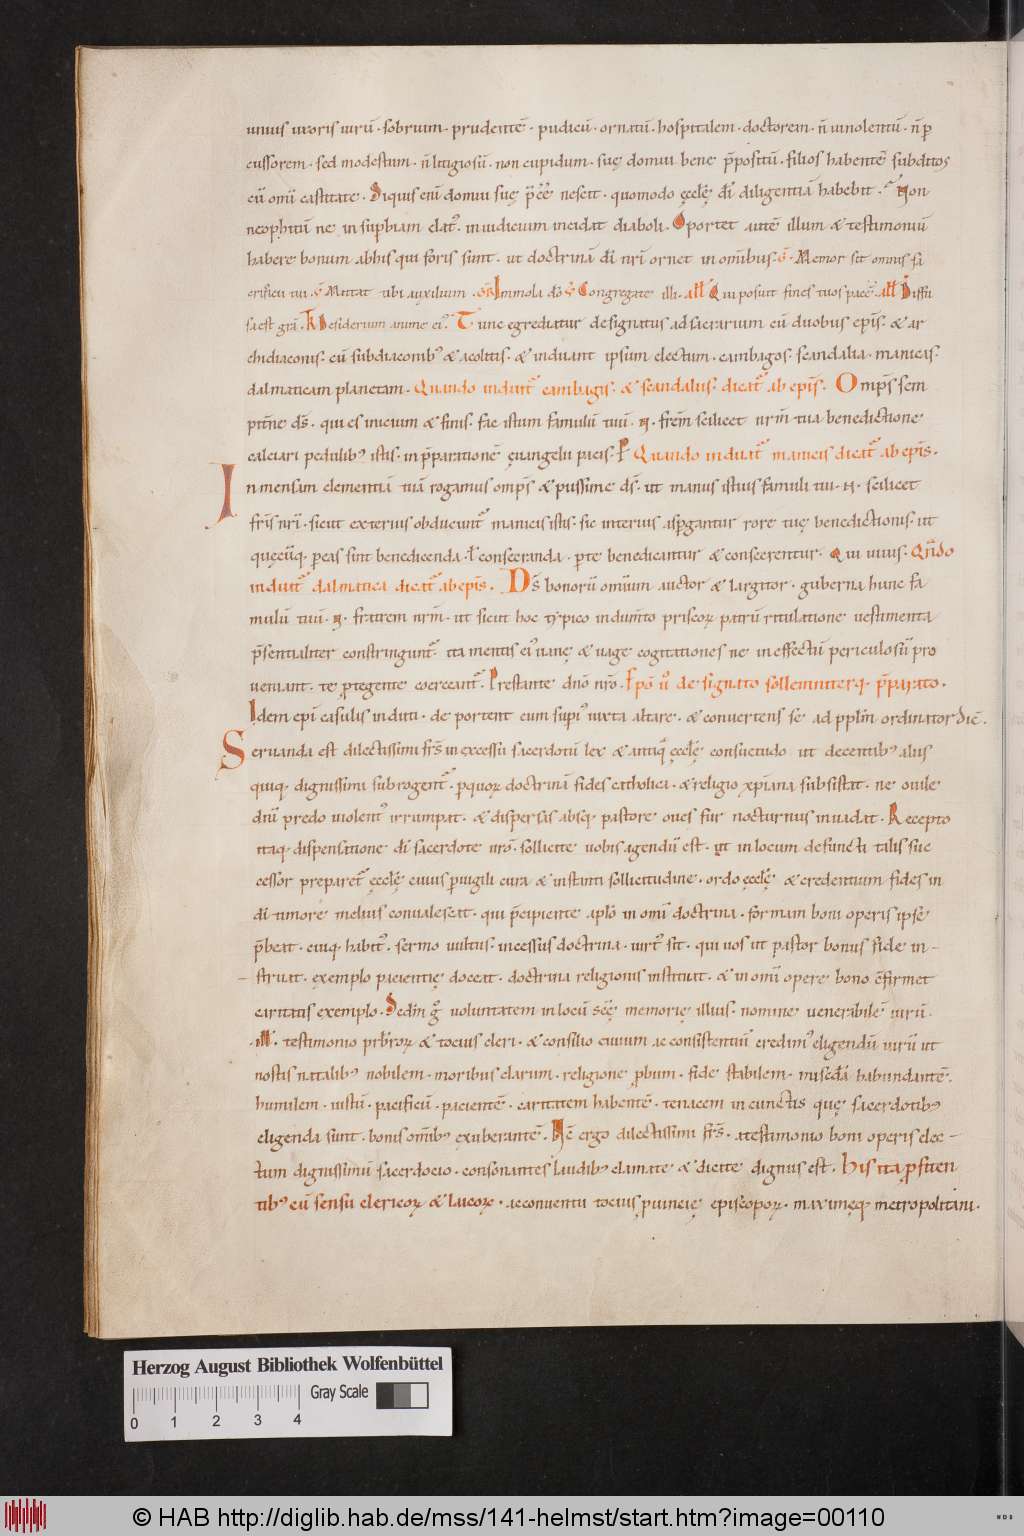 unius uxoris uirū · sobrium · prudentē · pudicū · ornatū · hospitalem · doctorem · n̄ uinolentū · n̄ ꝑ
cussorem · sed modestum · n̄ litigiosū · non cupidum · suę domui bene p̄positū · filios habentē subditos
cū omī castitate · Siquis enī domui suę p̄ee̅ nescit · quomodo ęcclę̄ dī diligentiā habebit · Non
neophitū ne in supbiam elatꝰ · in iudicium incidat diaboli · Oportet autē illum & testimoniū
habere bonum abhis qui foris sunt · ut doctrinā dī nr̄i ornet in omībus · Memor sit omnis sa
crificii tui · Mittat tibi auxilium · Immola dō · Congregate illi · aƚƚ Qui posuit fines tuos pacē · aƚƚ Diffu
sa est grā · Desiderium anime eiꝰ · Tunc egrediatur designatus ad sacrarum cū duobus epīs · & ar
chidiaconis · cū subdiaconibꝰ & acolitis · & induant ipsum electum · cambagos · scandalia · manicas ·
dalmaticam planetam · Quando induit᷑ cambagis · & scandalus · dicat᷑ ab epīs · Omps̄ sem
pit̄ne ds̄ · qui es inicium & finis · fac istum famulū tuū · N · frēm scilicet nr̄m tua benedictione
calciari pedulibꝰ istis · in p̄paratione ęuangelii pacis · P Quando induat᷑ manicis dicat᷑ ab epīs ·
In mensam clementiā tuā rogamus omps̄ & piissime ds̄ · ut manus istius famuli tui · N · scilicet
fr̄is nr̄i · sicut exterius obducunt᷑ manicis istis · sic interius aspgantur rore tuę benedictionis · ut
quęcūq · ꝑ eas sint benedicenda · ƚ consecranda · ꝑ te benedicantur & consecrentur · Qui uiuis · Qn̄do
induit᷑ dalmatica dicat᷑ ab epīs · Ds̄ bonorū omium auctor & largitor · guberna hunc fa
mulū tuū · N · fratrem nrm̄ · ut sicut hoc typico indum̄to priscoꝝ patrū ritulatione uestimenta
p̄sentialiter constringunt᷑ · ita mentis eiꝰ uanę & uage cogitationes ne in effectū periculosū pro
ueniant · te ꝓtegente coerceant᷑ · Prestante dnō nrō · Epō ū de signato sollemniterq · p̄parato ·
Idem epī casulis induti · de portent eum supiꝰ iuxta altare · & conuertens se ad pplm̄ ordinator dic̄ ·
Seruanda est dilectissimi fr̄s in excessu sacerdotū lex & antiq̄ ęcclę̄ consuetudo ut decentibꝰ aliis
quiq · dignissimi subrogent᷑ · ꝑ quoꝝ doctrinā fides catholica · & religio xpiana subsistat · ne ouile
dnī predo uiolentꝰ irrumpat · & dispersas absq pastore oues fur nocturnus inuadat · Recepto
itaq · dispensatione dī sacerdote urō · sollicite uobis agendū est · ut in locum defuncti talis suc
cessor preparet᷑ ęcclę̄ cuius ꝑuigili cura & instanti sollicitudine · ordo ęcclę̄ & credentium fides in
dī timore melius conualescat · qui p̄cipiente aplō in omī doctrina · formam boni operis ipse
p̄beat · cuiq · habitꝰ · sermo uultus · incessus doctrina · uirtꝰ sit · qui uos ut pastor bonus fide in–
struat · exemplo pacientię doceat · doctrina religionis instituat · & in omī opere bono c̄firmet
caritatis exemplo · Sedm̄ g̊ uoluntatem in locū scę̄ memorię illius · nomine uenerabilē uirū ·
N̄ · testimonio prƀroꝝ & tocius cleri · & consilio ciuium ac consistentiū credimꝰ eligendū uirū ut
nostis natalibꝰ nobilem · moribus clarum · religione ꝓbum · fide stabilem · mised̄ā habundantē ·
humilem · iustū · pacificū · pacientē · caritatem habentē · tenacem in cunctis quę sacerdotibꝰ
eligenda sunt · bonis omībꝰ exuberantē · Hc̄ ergo dilectissimi fr̄s · a testimonio boni operis elec–
tum dignissimū sacerdocio · consonantes laudibꝰ clamate & dicite dignus est · His ita ꝓsiten
tibꝰ cū sensu clericoꝝ & laicoꝝ · ac conuentu tocius ꝓuincię episcopoꝝ · maximęq metropolitani ·
Herzog August Bibliothek Wolfenbüttel
Gray Scale
0 1 2 3 4
© HAB http://diglib.hab.de/mss/141-helmst/start.htm?image=00110